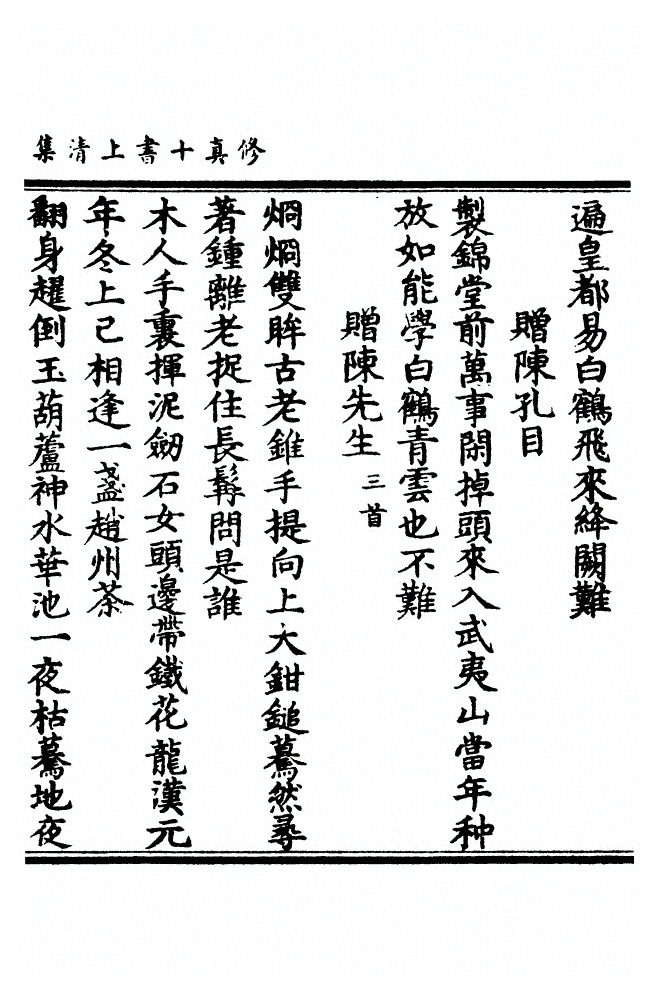 修真十書上清集
遍皇都易白鶴飛來絳闕難
贈陳孔目
製錦堂前萬事閑掉頭來入武夷山當年种
放如能學白鶴青雲也不難
贈陳先生 三首
烱烱雙眸古老錐手提向上大鉗鎚驀然尋
著鍾離老捉住長髯問是誰
木人手裏揮泥劒石女頭邊帶鐵花龍漢元
年冬上巳相逢一盞趙州茶
翻身趯倒玉葫蘆神水華池一夜枯驀地夜